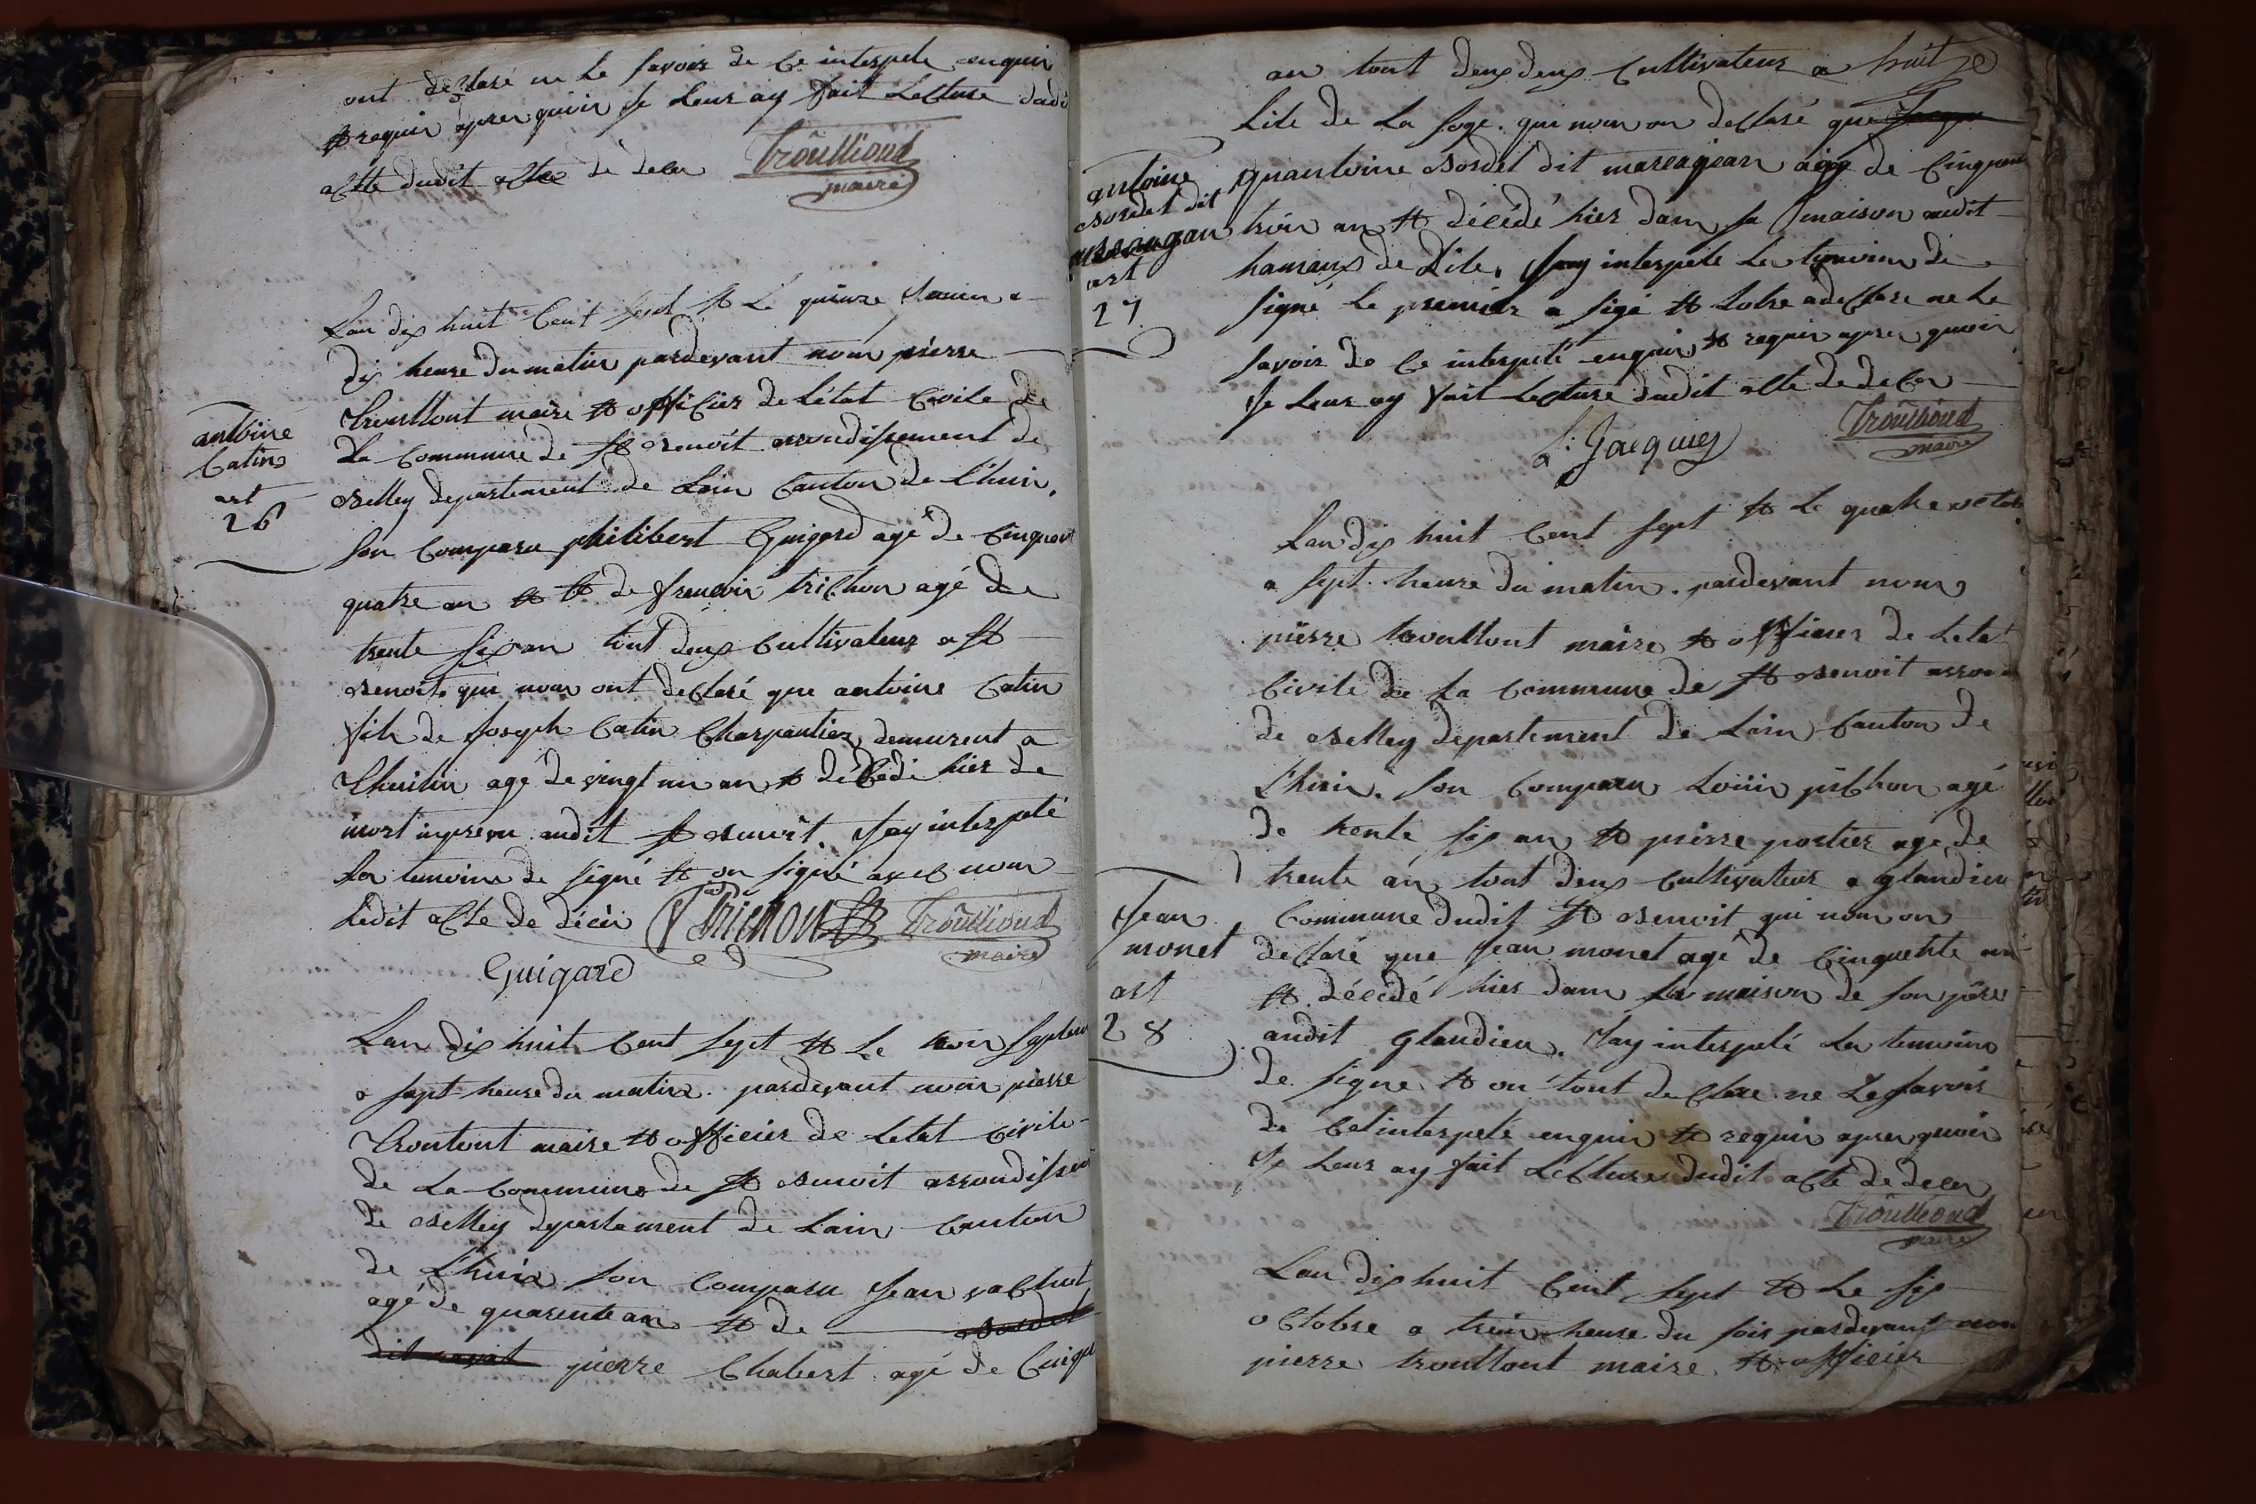 ont declaré ne le savoir de ce interpele enquin
et requin apres quoin je leur ay fait lecture dudi
acte dudit acte de deces Troullioud
maire
Lan dix huit cent sept et le quinze a
dix heure du matin pardevant nous pierre
antoine
Catin
art
26
troullout maire et officier de létat civile de
la commune de st benoit arrondissement de
belley departement de lain canton de lhuis.
son comparu philibert Guigard agé de cinquant
quatre an et de francois trichon agé de
trente six an tout deux cultivateur a st
benoit qui nous ont declaré que antoine Catin
fils de joseph Catin charpantier demurent a
agé de vingt un an et décédé hier de
mort inprevu audit st benoit. Jay interpelé
les temoins de signé et on signé avec nous
ledit acte de décès F Trichon Troullioud
maire
Guigard
Lan dix huit cent sept et le trois septem
a sept heure du matin pardevant nous pierre
troutout maire et officier de letat civile
de la commune de st benoit arrondissem
de belley departement de lain canton
de lhuis son comparu jean vachut
agé de quarente an et de bordet
dit pierre Chabert agé de cinqu
an tout deux deux cultivateur a
Lile de la qui nous on declaré que
antoine
bordet dit
art
27
quantoine bordet dit mareajean agé de cinquan
trois an et décédé hier dans sa maison audit
hameaux de Lile. Jay interpele les temoins de
signé le premier a sigé et lotre a declare ne le
savoir de ce interpelé enquin et requin apres quoin
je leur ay fait lecture dudit acte de deces
L. Jacquier Troullioud
maire
Lan dix huit cent sept et le quatre octob
a sept heure du matin. pardevant nous
pierre troullout maire et officier de letat
civile de la commune de st benoit arron
de belley departement de lain canton de
Lhuis. son comparu Louis pichon agé
de trente six an et pierre portier agé de
trente an tout deux cultivateur a glandieu
Jean
monet
art
28
commune dudit st benoit qui nous on
declaré que jean monet agé de cinquente an
et décédé hier dans la maison de son père
audit glandieu. Jay interpelé les temoins
de signé et on tout declare ne le savoir
de cet interpelé enquin et requin apres quoin
je leur ay fait lecture dudit acte de deces
Troullioud
maire
Lan dix huit cent sept et le six
octobre a trois heure du soir pardevant nous
pierre troullout maire et officier